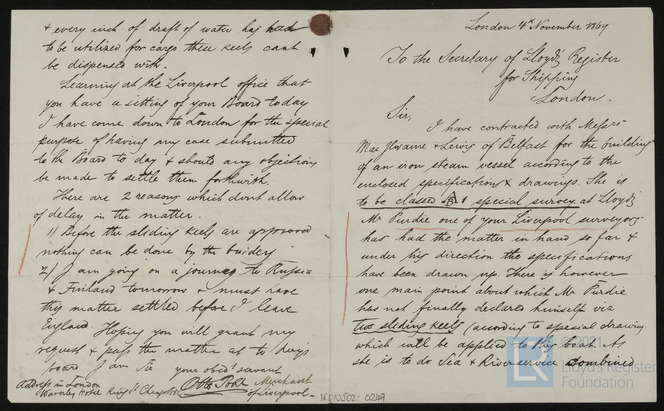 London 4th November 1869
To the Secretary of Lloyd's Register
for Shipping
London.
Sir,
I have contracted with Messrs
MacIlwaine & Lewis of Belfast for the building
of an iron steam vessel according to the
enclosed specifications & drawings. She is
to be classed A 1 special survey at Lloyds
Mr Purdie one of your Liverpool surveyors
has had the matter in hand so far &
under his direction the specifications
have been drawn up. There is however
one main point about which Mr Purdie
has not finally declared himself viz
two sliding keels (according to special drawing
which will be applied to this boat. As
she is to do Sea & River service combined
& every inch of draft of water has had
to be utilized for cargo these keels cant
be dispensed with.
Learning at the Liverpool office that
you have a sitting of your Board today
I have come down to London for the special
purpose of having my case submitted
to the Board to day & should any objections
be made to settle them forthwith.
There are 2 reasons which dont allow
of delay in the matter.
1) Before the sliding keels are approved
nothing can be done by the builders
2) I am going on a journey to Russia
& Finland tomorrow & must have
this matter settled before I leave
England. Hoping you will grant my
request & pass the matter at to day's
board I am Sir your obedt servant
Otto Merchant
of Liverpool
Address in London
Hotel King St Cheapside
LRF-0249
© 2021
LR
Lloyd's Register
Foundation